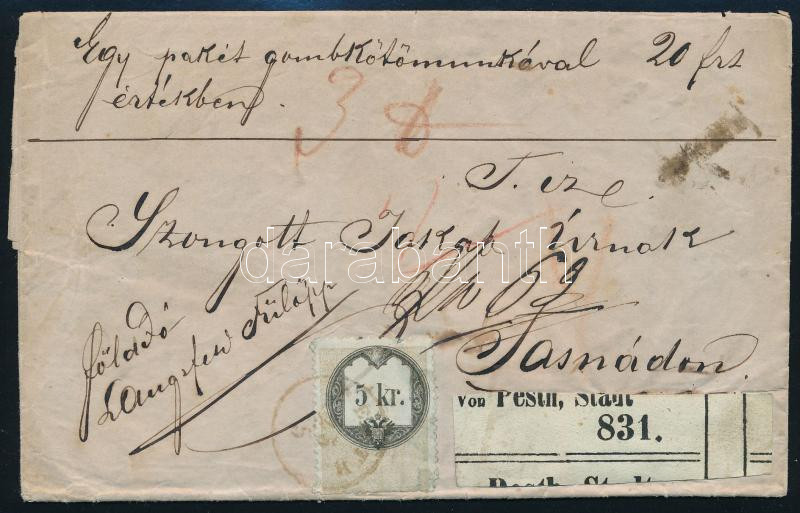 Egy pakét gombkötőmunkával 20 frt
értékben.
3
T. cz.
Szongott Jakab Úrnak
Tasnádon
föladó
Langfeld Fülöpp
5 kr.
von Pesth, Stadt
831.
Pesth, Stadt
darabanth